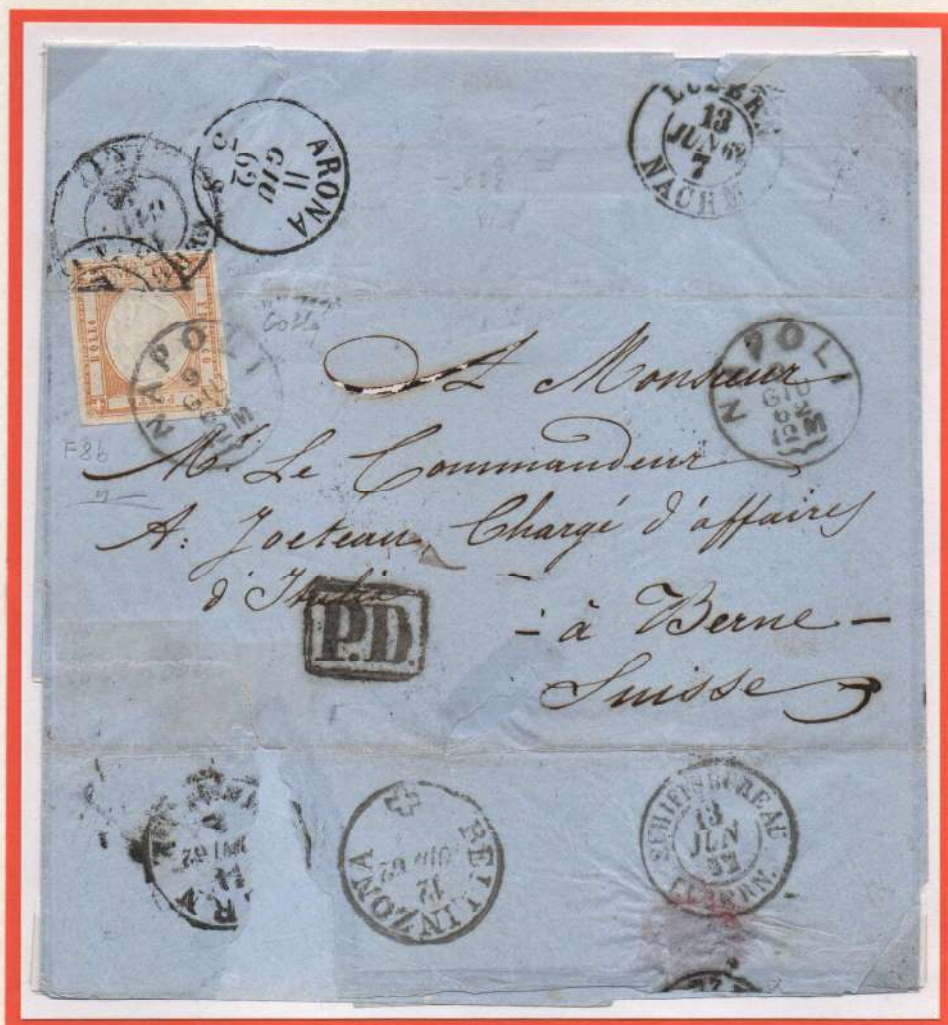 ARONA
11
GIU
62
LUZERN
13
JUN 62
7
NACHM
NAPOLI
9
GIU
62
NAPOLI
GIU
62
F8b
A Monsieur
Mr. Le Commandeur
A: Jocteau Chargé d'affaires
d'Italie
P.D.
- à Berne -
Suisse
BELLINZONA
12
GIU 62
SCHIFFSBUREAU
13
JUN
62
LUZERN.